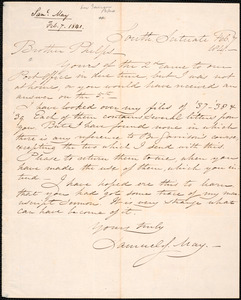 Saml. May
Feb. 7. 1841.
South Scituate Feb 7
1841
Brother Phelps
Yours of the 2d came to our
Post office in due time, but I was not
at home, or you would have received an
answer on
I have looked over my files of '37-'38 &
39. Each of them contains several letters from
you. But I have found none in which
there is any reference to Mr Garrison's course,
excepting the two which I send with this.
Please to return them to me, when you
have made the use of them, which you in-
tend -
I have hoped ere this to learn
that you had got some trace of my man-
uscript sermon. It is very strange what
can have become of it.
Yours truly
Samuel J. May.